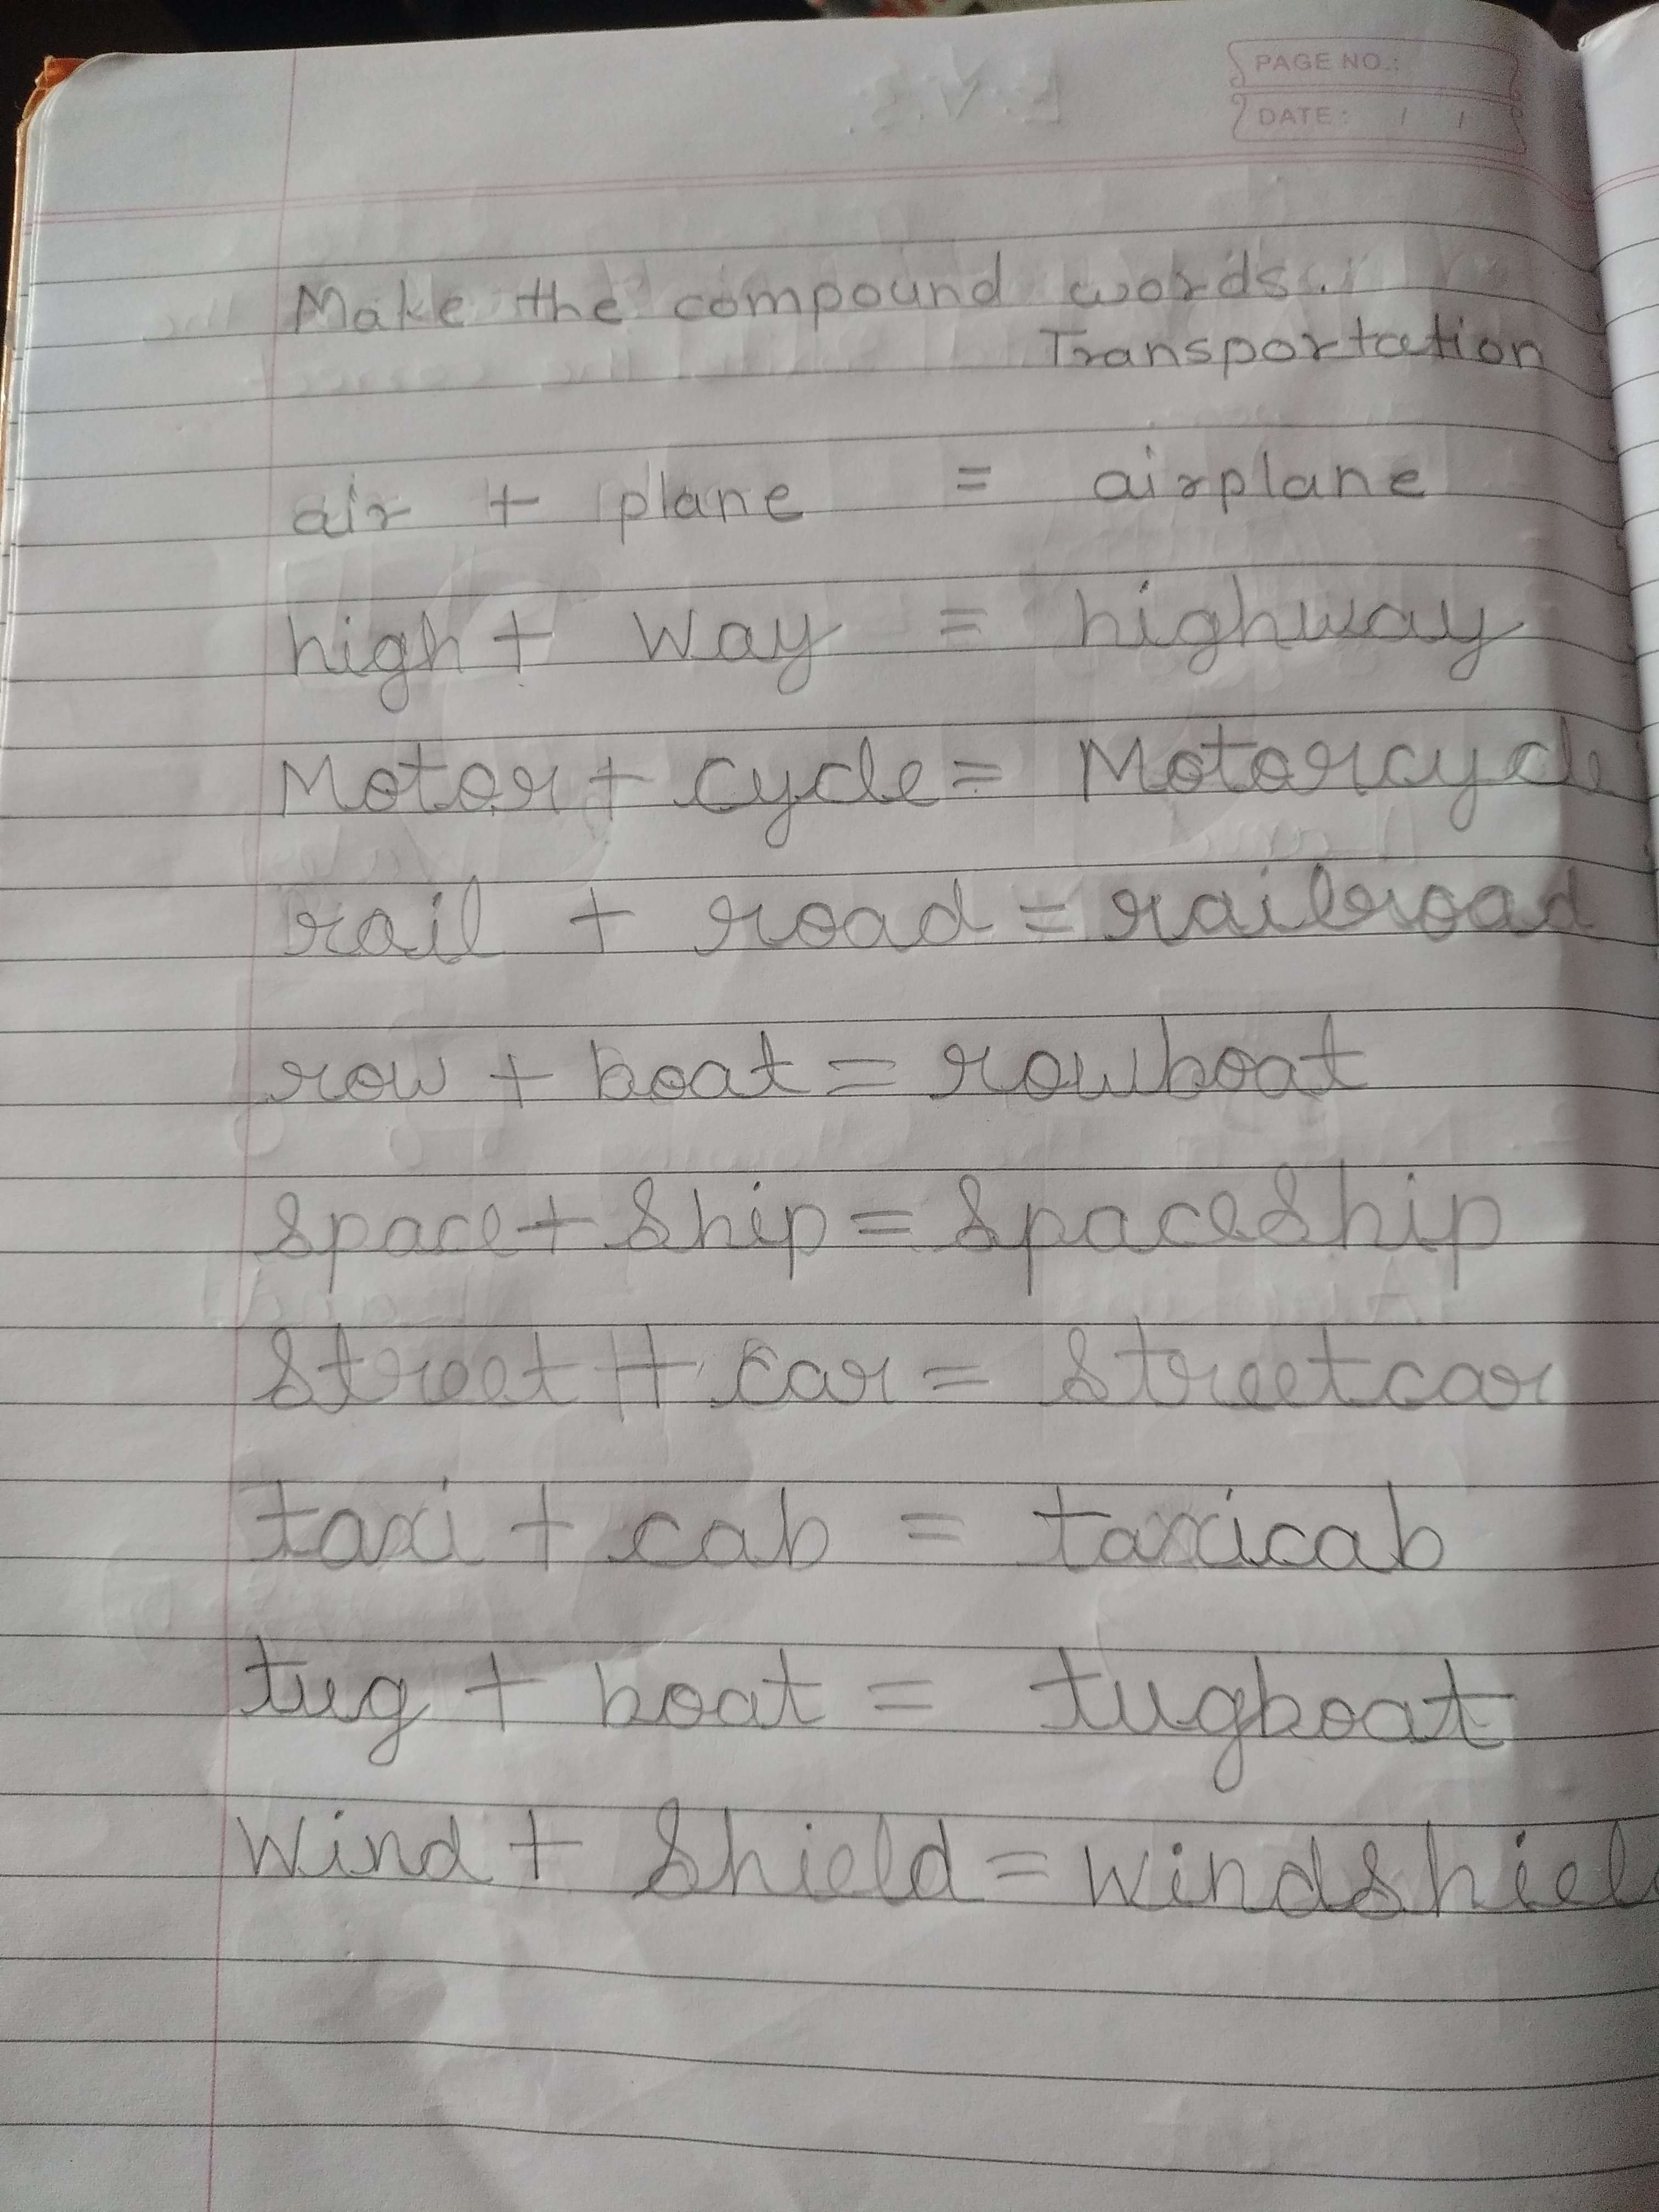 PAGE NO.:
DATE: / /
Make the compound words.
Transportation
air + plane = airplane
high + way = highway
Motor + cycle = Motorcycle
rail + road = railroad
row + boat = rowboat
space + ship = spaceship
street + car = streetcar
taxi + cab = taxicab
tug + boat = tugboat
Wind + shield = windshield